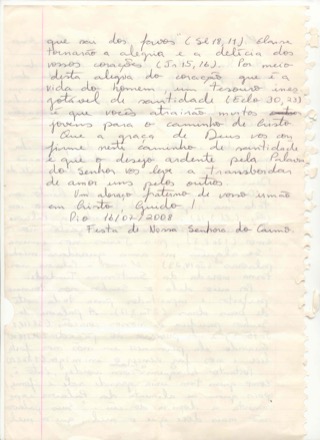 que sai dos favos" (Sl 18,11). Elas se
tornarão a alegria e a delícia dos
vossos corações (Jr 15,16). Por meio
desta alegria do coração que é a
vida do homem, um tesouro ines
gotável de santidade (Eclo 30,23)
é que vocês atrairão muitos
jovens para o caminho de Cristo.
Que a graça de Deus vos con
firme neste caminho de santidade
e que o desejo ardente pela Palavra
do Senhor vos leve a transbordar
de amor uns pelos outros.
Um abraço fraterno de vosso irmão
em Cristo, Guido!
Rio 16/07/2008
Festa de Nossa Senhora do Carmo.